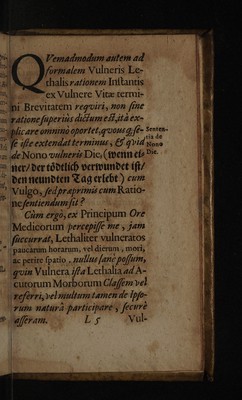 QVemadmodum autem ad
formalem Vulneris Le-
thalis rationem Instantis
ex Vulnere Vitæ termi-
ni Brevitatem reqviri, non sine
ratione superiùs dictum est, ità ex-
plicare omninò oportet, qvousq; se-
se iste extendat terminus, & qvid
de Nono vulneris Die, (wenn ei-
ner / der tödtlich verwundet ist /
den neundten Tag erlebt) cum
Vulgo, sed præprimis cum Ratio-
ne sentiendum sit?
Senten-
tia de
Nono
Die.
Cùm ergò, ex Principum Ore
Medicorum percepisse me, jam
succurrat, Lethaliter vulneratos
paucarum horarum, vel dierum, mori,
ac perire spatio, nullus sanè possum,
quin Vulnera ista Lethalia ad A-
cutorum Morborum Classem vel
referri, vel multum tamen de Ipso-
rum naturâ participare, securè
asseram.
L 5
Vul-